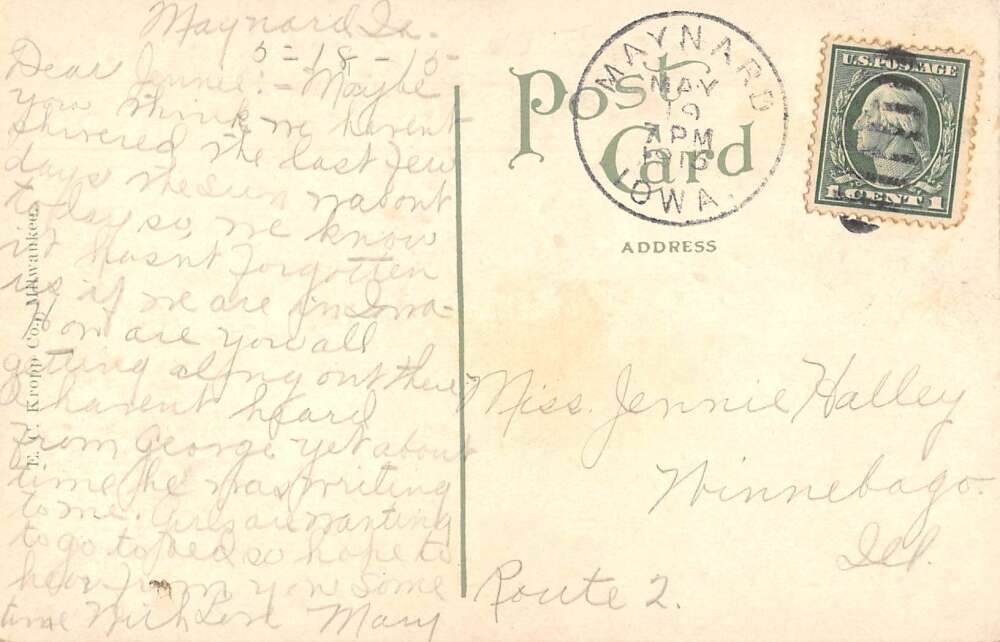 Maynard Ia.
5-18-15-
Dear Jennie:- Maybe
you think we havent
shivered the last few
days the sun was out
today so, we know
it hasnt forgotten
us if we are in Iowa-
How are you all
getting along out there
I havent heard
from George yet about
time he was writing
to me. Girls are wanting
to go to bed so hope to
hear from you some
time With Love Mary
E. C. Kropp Co., Milwaukee.
Post
Card
MAYNARD
MAY
19
7 PM
1915
IOWA.
U.S. POSTAGE
1 CENT 1
ADDRESS
Miss. Jennie Halley
Winnebago.
Ill.
Route 2.